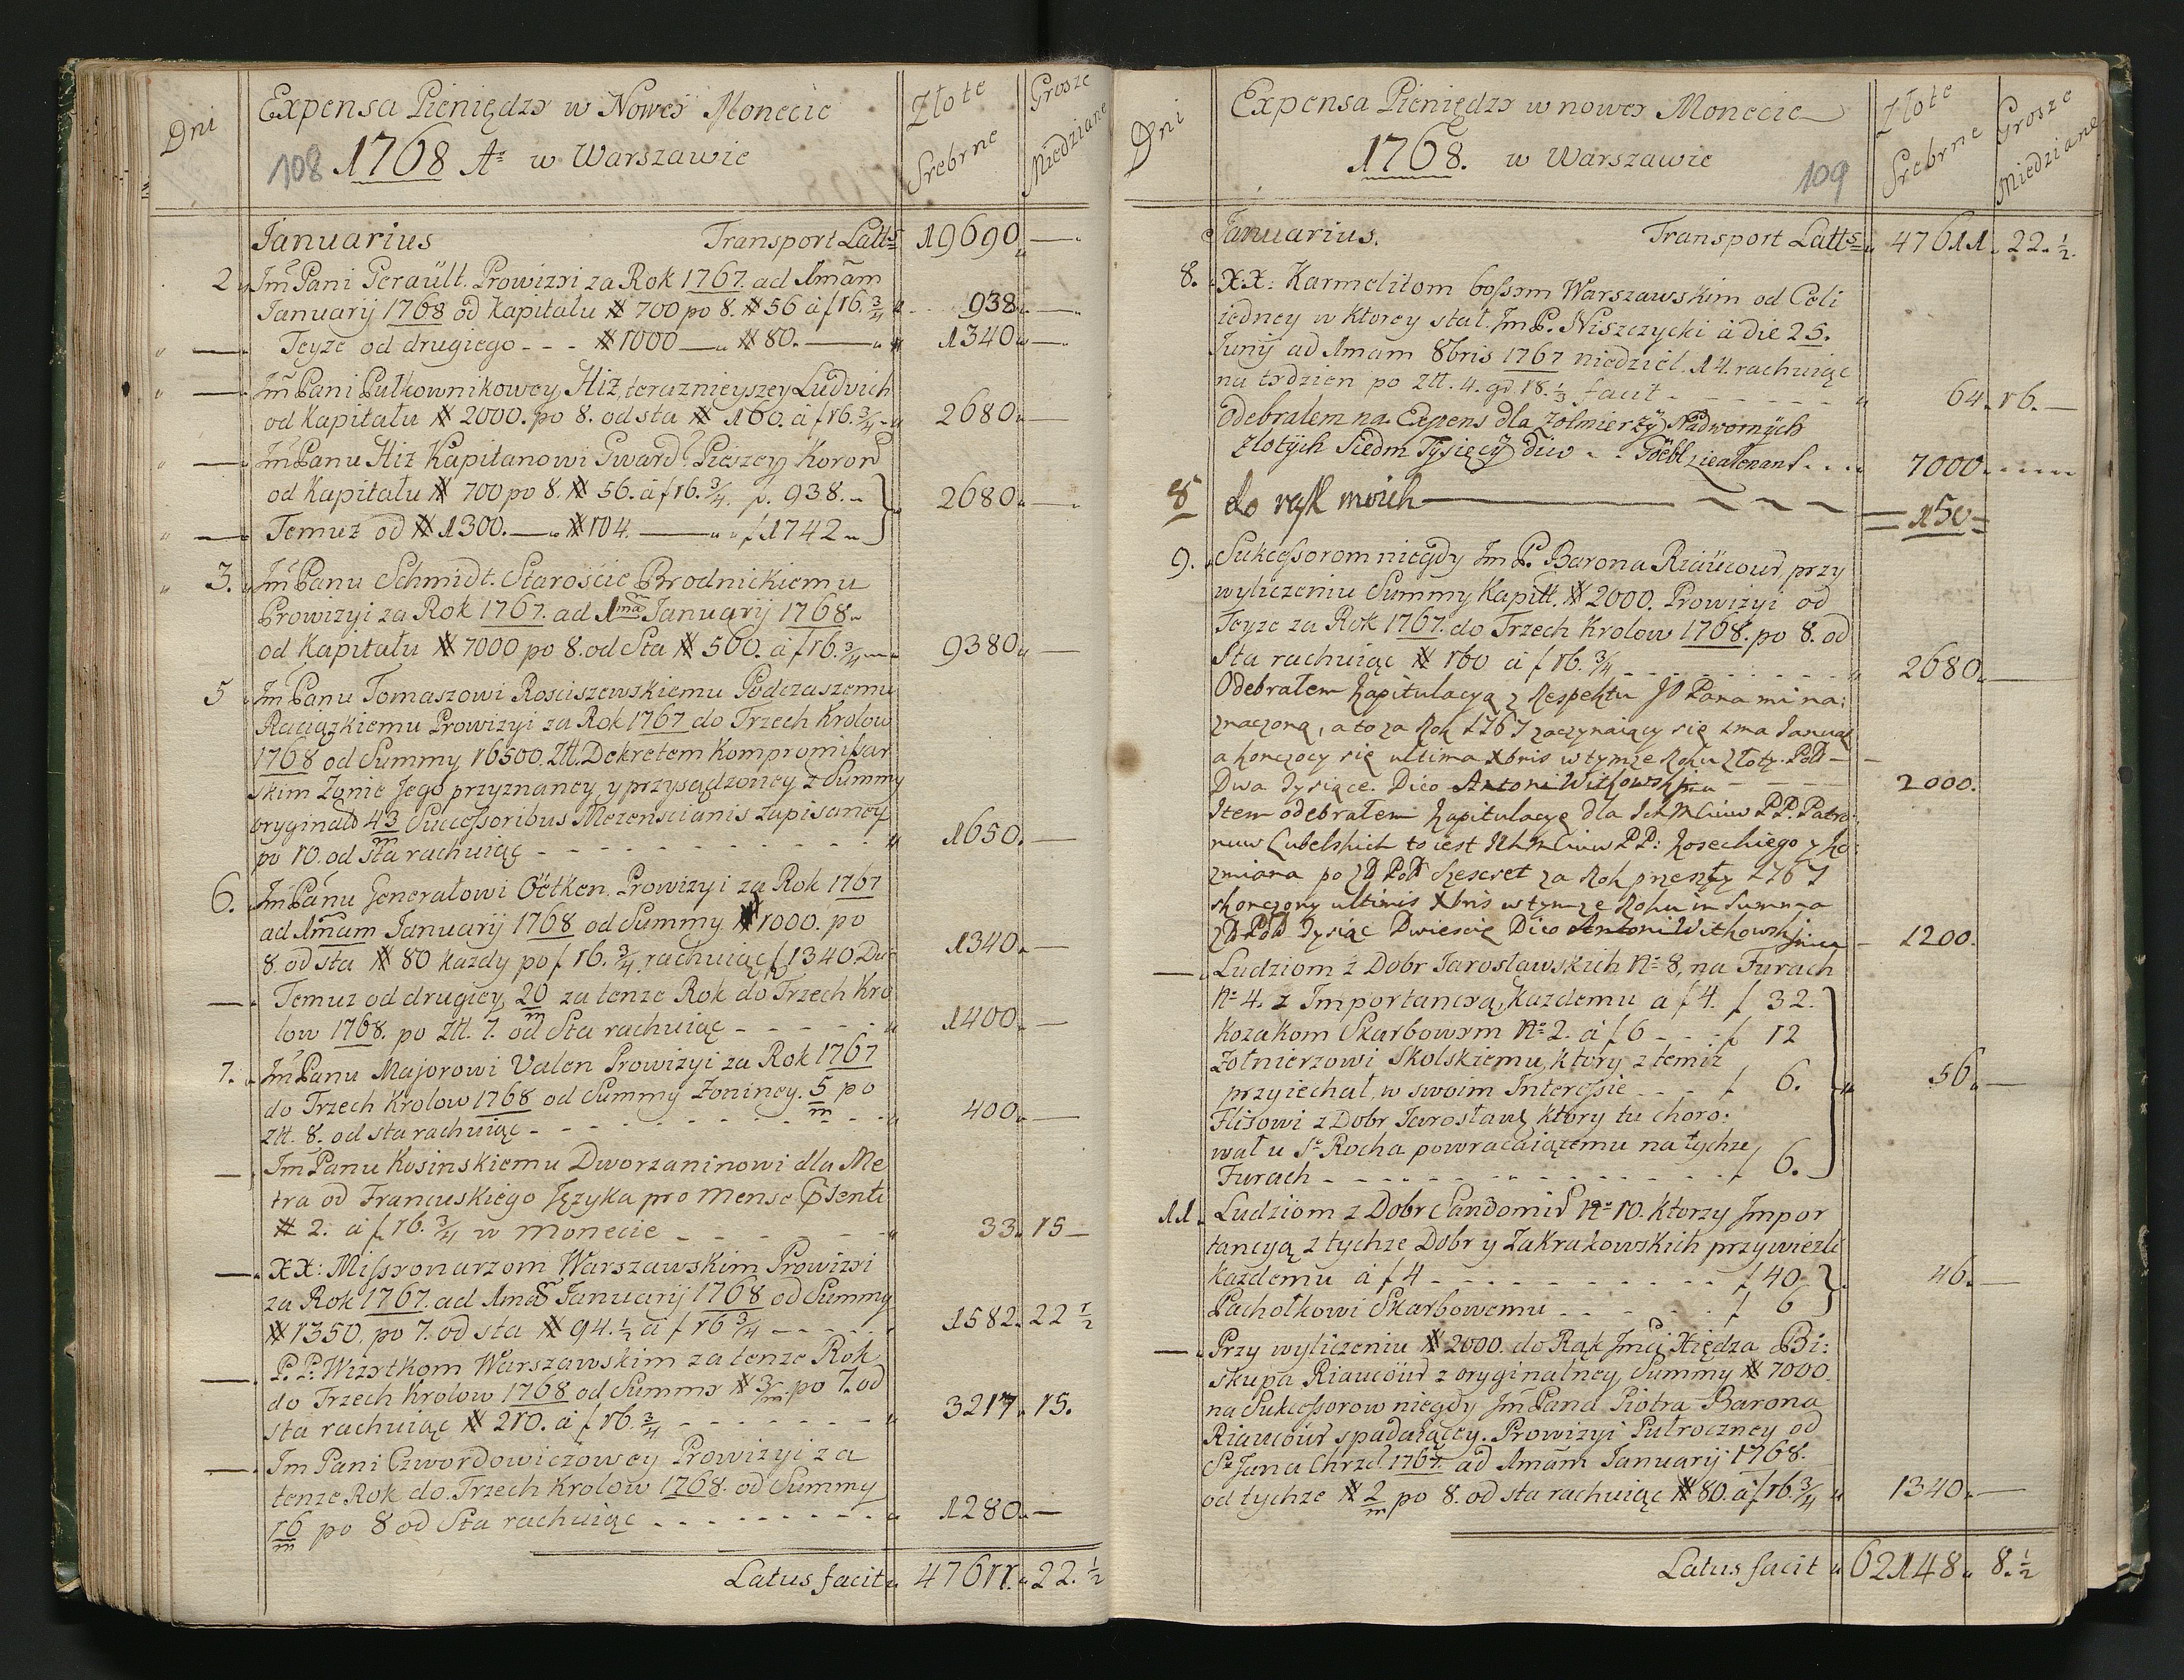 Dni
Expensa Pieniędzy w Nowey Monecie
Złote Srebrne
Grosze Miedziane
108 1768 Aº w Warszawie
Januarius Transport Latts 19690 —
2 Jm̃Pani Gerault. Prowizyi za Rok 1767. ad 1mam
Januarij 1768 od Kapitału # 700 po 8. # 56 à f 16. 3/4 938 —
— Teyze od drugiego - - - # 1000 — # 80. — 1340 —
— Jm̃Pani Pułkownikowey Hiz, teraznieyszey Ludvich
od Kapitału # 2000. po 8. od sta # 160. à f 16. 3/4 2680 —
— Jm̃Panu Hiz Kapitanowi Gward. Pieszey Koron
od Kapitału # 700 po 8. # 56. à f 16. 3/4. f. 938. 2680 —
— Temuz od # 1300. — # 104. — f 1742
3. Jm̃Panu Schmidt. Starościc Brodnickiemu
Prowizyi za Rok 1767. ad 1mã Januarij 1768
od Kapitału # 7000 po 8. od Sta # 560. à f 16. 3/4 9380 —
5 Jm̃Panu Tomaszowi Rosciszewskiemu Podczaszemu
Raciązkiemu Prowizyi za Rok 1767 do Trzech Krolow
1768 od Summy 16500. Ztt. Dekretem Kompromissar
skim Zonie Jego przyznaney y przysądzoney z Summy
oryginal 43/m Successoribus Mezenscianis zapisaney
po 10. od sta rachuiąc - - - 1650. —
6. Jm̃Panu Generałowi Öetken. Prowizyi za Rok 1767
ad 1mam Januarij 1768 od Summy # 1000. po
8. od sta # 80 kazdy po f 16. 3/4 rachuiąc f 1340 1340. —
— Temuz od drugiey 20/m za tenze Rok do Trzech Kro
low 1768. po Ztt. 7. od Sta rachuiąc - - - 1400. —
7. Jm̃Panu Majorowi Valen Prowizyi za Rok 1767
do Trzech Krolow 1768 od Summy Zoniney. 5/m po
Ztt. 8. od sta rachuiąc - - - 400. —
— Jm Panu Kosinskiemu Dworzaninowi dla Me
tra od Francuskiego Języka pro Mense psenti
# 2. à f 16. 3/4 w monecie - - - 33. 15 —
— XX: Missyonarzom Warszawskim Prowizyi
za Rok 1767. ad 1mam Januarij 1768 od Summy
# 1350. po 7. od sta # 94. 1/2 à f 16 3/4 - - - 1582. 22 1/2
— P. P. Wizytkom Warszawskim za tenze Rok
do Trzech Krolow 1768 od Summy # 3/m. po 7. od
sta rachuiąc # 210. à f 16. 3/4 - - - 3217. 15.
— Jm Pani Czwordowiczowey Prowizyi za
tenze Rok do Trzech Krolow 1768. od Summy
16/m po 8 od Sta rachuiąc - - - 1280. —
Latus facit 47611. 22. 1/2
Dni
Expensa Pieniędzy w nowey Monecie
Złote Srebrne
Grosze Miedziane
1768. w Warszawie 109
Januarius. Transport Latts 47611. 22. 1/2
8. XX: Karmelitom bossym Warszawskim od Celi
iedney w Ktorey stał. Jm P. Niszczycki à die 25.
Junij ad 1mam 8bris 1767 niedziel. 14. rachuiąc
na tydzien po Ztt. 4. gr 18. 1/3 facit - - - 64. 16. —
Odebrałem na Expens dla Zołmierzÿ Nadwornÿch
Złotÿch Siedm Tysięcÿ Dico - - Göebl Lieutenant 7000
8 do rąk moich — 150
9. Sukcessorom niegdy Jm P. Barona Riaücour, przy
wyliczeniu Summy Kapitt. # 2000. Prowizyi od
Teyze za Rok 1767. do Trzech Krolow 1768. po 8. od
Sta rachuiąc # 160 à f 16. 3/4 - - - 2680. —
Odebrałem Kapitulacyą z Respektu JO Pana mi na:
znaczoną, a to za Rok 1767 zaczynaiący się 1ma Januar
a kończący się ultima Xbris w tymże Roku Złoty. Pol —
Dwa Tysiące. Dico Antoni Witkowski mp 2000.
Item odebrałem Kapitulacyę dla Ich Mciuw PP. Patro:
nuw Lubelskich to iest Ich Mciuw PP: Koseckiego y Ko:
zmiana po Zł Pol Szescset za Rok przeszły 1767
skonczony ultimis Xbris w tymze Roku in Summa
Zł Pol Tysiąc Dwiescie Dico Antoni Witkowski mp 1200.
— Ludziom z Dobr Jaroslawskich Nº 8, na Furach
Nº 4. z Importancyą, kazdemu a f 4. f 32.
Kozakom Skarbowym Nº 2. à f 6 - - f 12
Zołnierzowi Skolskiemu, ktory z temiz
przyiechał, w swoim Interessie - - f 6. 56 —
Flisowi z Dobr Jarosław, ktory tu choro:
wał u Sº Rocha powracaiącemu na tychze
Furach - - - f 6.
11. Ludziom z Dobr Sandomir Nº 10. ktorzy Impor
tancyą z tychze Dobr y Zakrakowskich przywiezli
kazdemu à f 4 - - - f 40 46. —
Pachołkowi Skarbowemu - - - f 6
— Przy wyliczeniu # 2000. do Rąk Jmci Xiędza Bi:
skupa Riaucöur z oryginalney Summy # 7000.
na Sukcessorow niegdy Jm̃Pana Piotra Barona
Riaucöur spadaiącey. Prowizyi Pułroczney od
Sº Jana Chrzcl 1767. ad 1mam Januarij 1768.
od tychze # 2/m po 8. od sta rachuiąc # 80. à f 16. 3/4 1340. —
Latus facit 62148. 8. 1/2